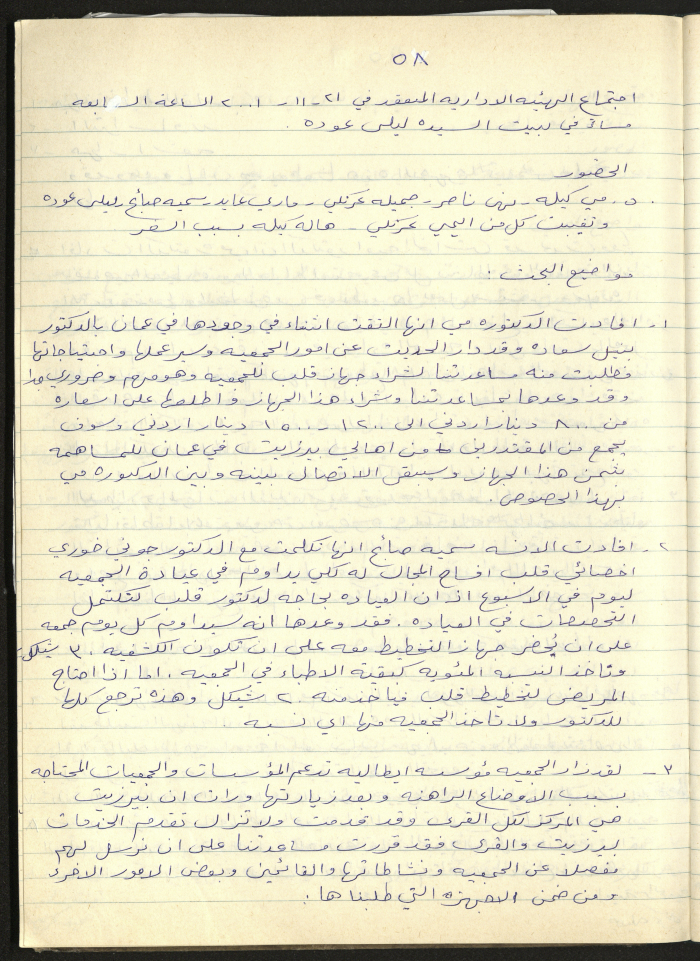 ٥٨
اجتماع الهيئه الاداريه المنعقد في ٢١-١١-٢٠٠١ الساعة السابعه
مساءً في لبيت السيده ليلى عوده .
الحضور
د. مي كيله - نهى ناصر - جميله عرنكي - ماري عابد - سميه صائغ - ليلى عوده
وتغيبت كل من اليمي عرنكي - هاله كيله بسبب السفر
مواضيع البحث :
١- افادت الدكتوره مي انها التقت اثناء في وجودها في عمان بالدكتور
نبيل سعاده وقد دار الحديث عن امور الجمعيه وسير عملها واحتياجاتها
فطلبت منه مساعدتنا لشراء جهاز قلب للجمعيه وهو مهم وضروري جدا
وقد وعدها بمساعدتنا وشراء هذا الجهاز واطلعها على اسعاره
من ٨٠٠٠ دينار اردني الى ١٢٠٠٠ - ١٥٠٠٠ دينار اردني وسوف
يجمع من المقتدرين من اهالي بيرزيت في عمان للمساهمه
بثمن هذا الجهاز وسيبقى الاتصال بينه وبين الدكتوره مي
بهذا الخصوص .
٢- افادت الانسه سميه صائغ انها تكلمت مع الدكتور جوني خوري
اخصائي قلب افساح المجال له لكي يداوم في عيادة الجمعيه
ليوم في الاسبوع اذ ان العياده بحاجه لدكتور قلب لتكتمل
التخصصات في العياده . فقد وعدها انه سيداوم كل يوم جمعه
على ان يُحضر جهاز التخطيط معه على ان تكون الكشفيه ٣٠ شيكل
وتاخذ النسبه المئويه كبقية الاطباء في الجمعيه . اما اذا احتاج
المريض لتخطيط قلب فياخذ منه ٢٠ شيكل وهذه ترجع كلها
للدكتور ولا تاخذ الجمعيه منها اي نسبه .
٣- لقد زار الجمعيه مؤسسه ايطاليه تدعم المؤسسات والجمعيات المحتاجه
بسبب الاوضاع الراهنه وبعد زيارتها ورات ان بيرزيت
هي المركز لكل القرى وقد قدمت ولا تزال تقدم الخدمات
لبيرزيت والقرى فقد قررت مساعدتنا على ان نرسل لهم
مفصلا عن الجمعيه ونشاطاتها والقائمين وبعض الامور الاخرى
ومن ضمن الاجهزه التي طلبناها :